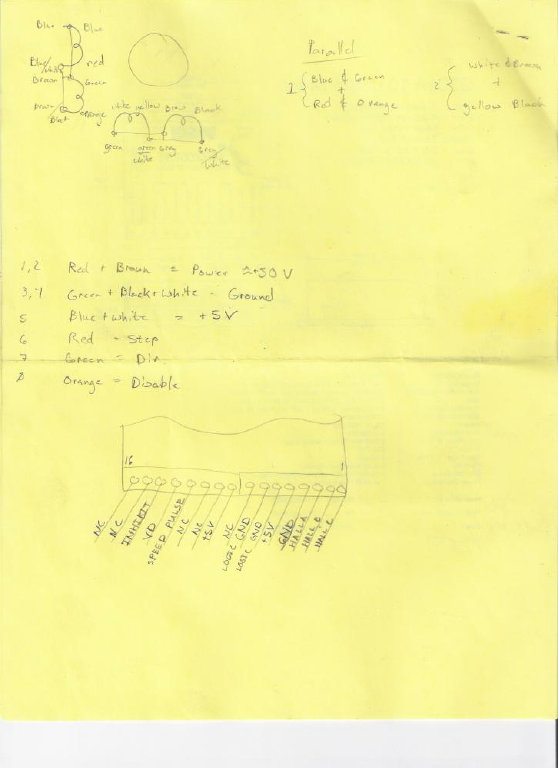 Blue Blue
Blue/White red
Brown Green
Brown Orange
White Yellow Brown Black
Green Green/White Grey Grey/White
Parallel
1 { Blue & Green
+
Red & Orange
2 { White & Brown
+
Yellow Black
1,2 Red + Brown = Power ≈+30 V
3,4 Green + Black+White - Ground
5 Blue + white = +5V
6 Red - Step
7 Green = Dir.
8 Orange = Disable
16 1
NC
NC
INHIBIT
VD
SPEED PULSE
NC
NC
+5V
LOGIC NC
GND
LOGIC GND
+5V
GND
HALL A
HALL B
HALL C